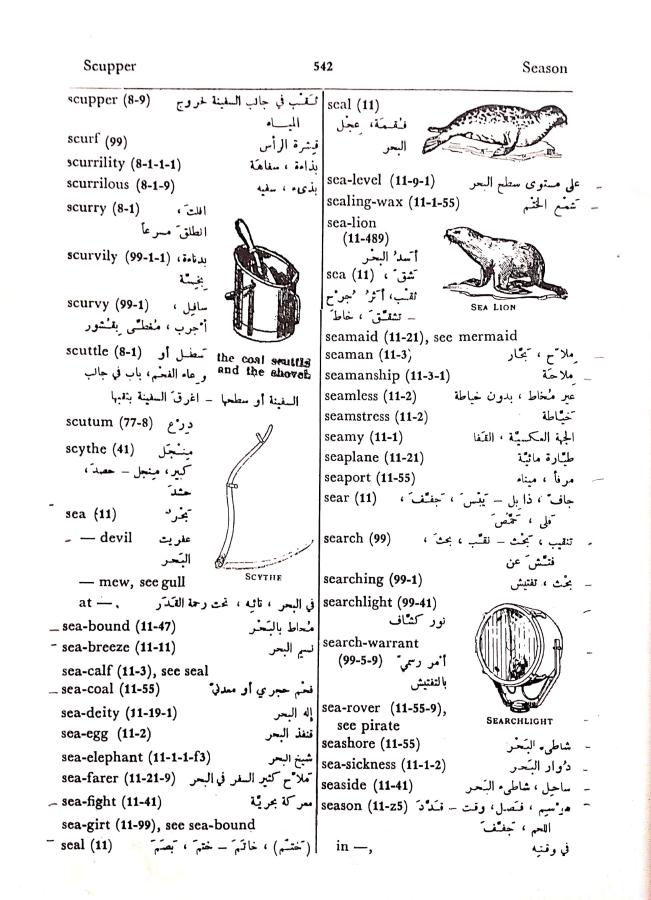 Scupper 542 Season
scupper (8-9) ثقب في جانب السفينة لخروج
المياه
scurf (99) قشرة الرأس
scurrility (8-1-1-1) بذاءة ، سفاهة
scurrilous (8-1-9) بذيء ، سفيه
scurry (8-1) افلت ،
انطلق مسرعاً
scurvily (99-1-1) بدناءة ،
بخسة
scurvy (99-1) سافل ،
أجرب ، مغطى بقشور
scuttle (8-1) سطل أو
وعاء الفحم، باب في جانب
السفينة أو سطحها – اغرق السفينة بثقبها
the coal scuttle
and the shovel
scutum (77-8) درع
scythe (41) منجل
كبير ، منجل – حصد ،
حشد
SCYTHE
sea (11) بحر
— devil عفريت
البحر
— mew, see gull
at —, في البحر ، تائه ، تحت رحمة القدر
sea-bound (11-47) محاط بالبحر
sea-breeze (11-11) نسيم البحر
sea-calf (11-3), see seal
sea-coal (11-55) فحم حجري أو معدني
sea-deity (11-19-1) إله البحر
sea-egg (11-2) قنفذ البحر
sea-elephant (11-1-1-f3) شيخ البحر
sea-farer (11-21-9) ملاح كثير السفر في البحر
sea-fight (11-41) معركة بحرية
sea-girt (11-99), see sea-bound
seal (11) (ختم) ، خاتم – ختم ، بصم
seal (11)
فقمة، عجل
البحر
sea-level (11-9-1) على مستوى سطح البحر
sealing-wax (11-1-55) شمع الختم
sea-lion
(11-489)
أسد البحر
SEA LION
sea (11) شق ،
ثقب، أثر جرح
– تشقق ، خاط
seamaid (11-21), see mermaid
seaman (11-3) ملاح ، بحار
seamanship (11-3-1) ملاحة
seamless (11-2) غير مخاط ، بدون خياطة
seamstress (11-2) خياطة
seamy (11-1) الجهة العكسية ، القفا
seaplane (11-21) طيارة مائية
seaport (11-55) مرفأ ، ميناء
sear (11) جاف ، ذابل – يبس ، جفف ،
قلى ، حمص
search (99) تنقيب ، بحث – نقب ، بحث ،
فتش عن
searching (99-1) بحث ، تفتيش
searchlight (99-41)
نور كشاف
search-warrant
(99-5-9) أمر رسمي
بالتفتيش
SEARCHLIGHT
sea-rover (11-55-9),
see pirate
seashore (11-55) شاطىء البحر
sea-sickness (11-1-2) دوار البحر
seaside (11-41) ساحل ، شاطىء البحر
season (11-25) موسم ، فصل، وقت – قدد
اللحم ، جفف
in —, في وقته